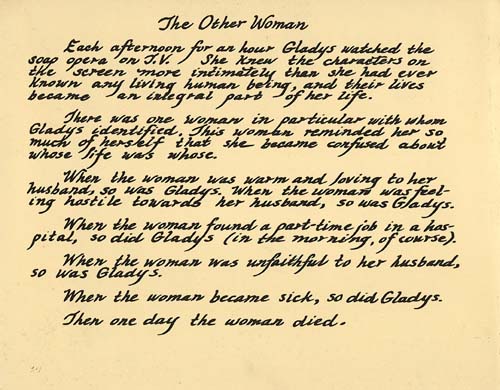 The Other Woman
Each afternoon for an hour Gladys watched the
soap opera on T.V. She knew the characters on
the screen more intimately than she had ever
known any living human being, and their lives
became an integral part of her life.
There was one woman in particular with whom
Gladys identified. This woman reminded her so
much of herself that she became confused about
whose life was whose.
When the woman was warm and loving to her
husband, so was Gladys. When the woman was feel-
ing hostile towards her husband, so was Gladys.
When the woman found a part-time job in a hos-
pital, so did Gladys (in the morning, of course).
When the woman was unfaithful to her husband,
so was Gladys.
When the woman became sick, so did Gladys.
Then one day the woman died.